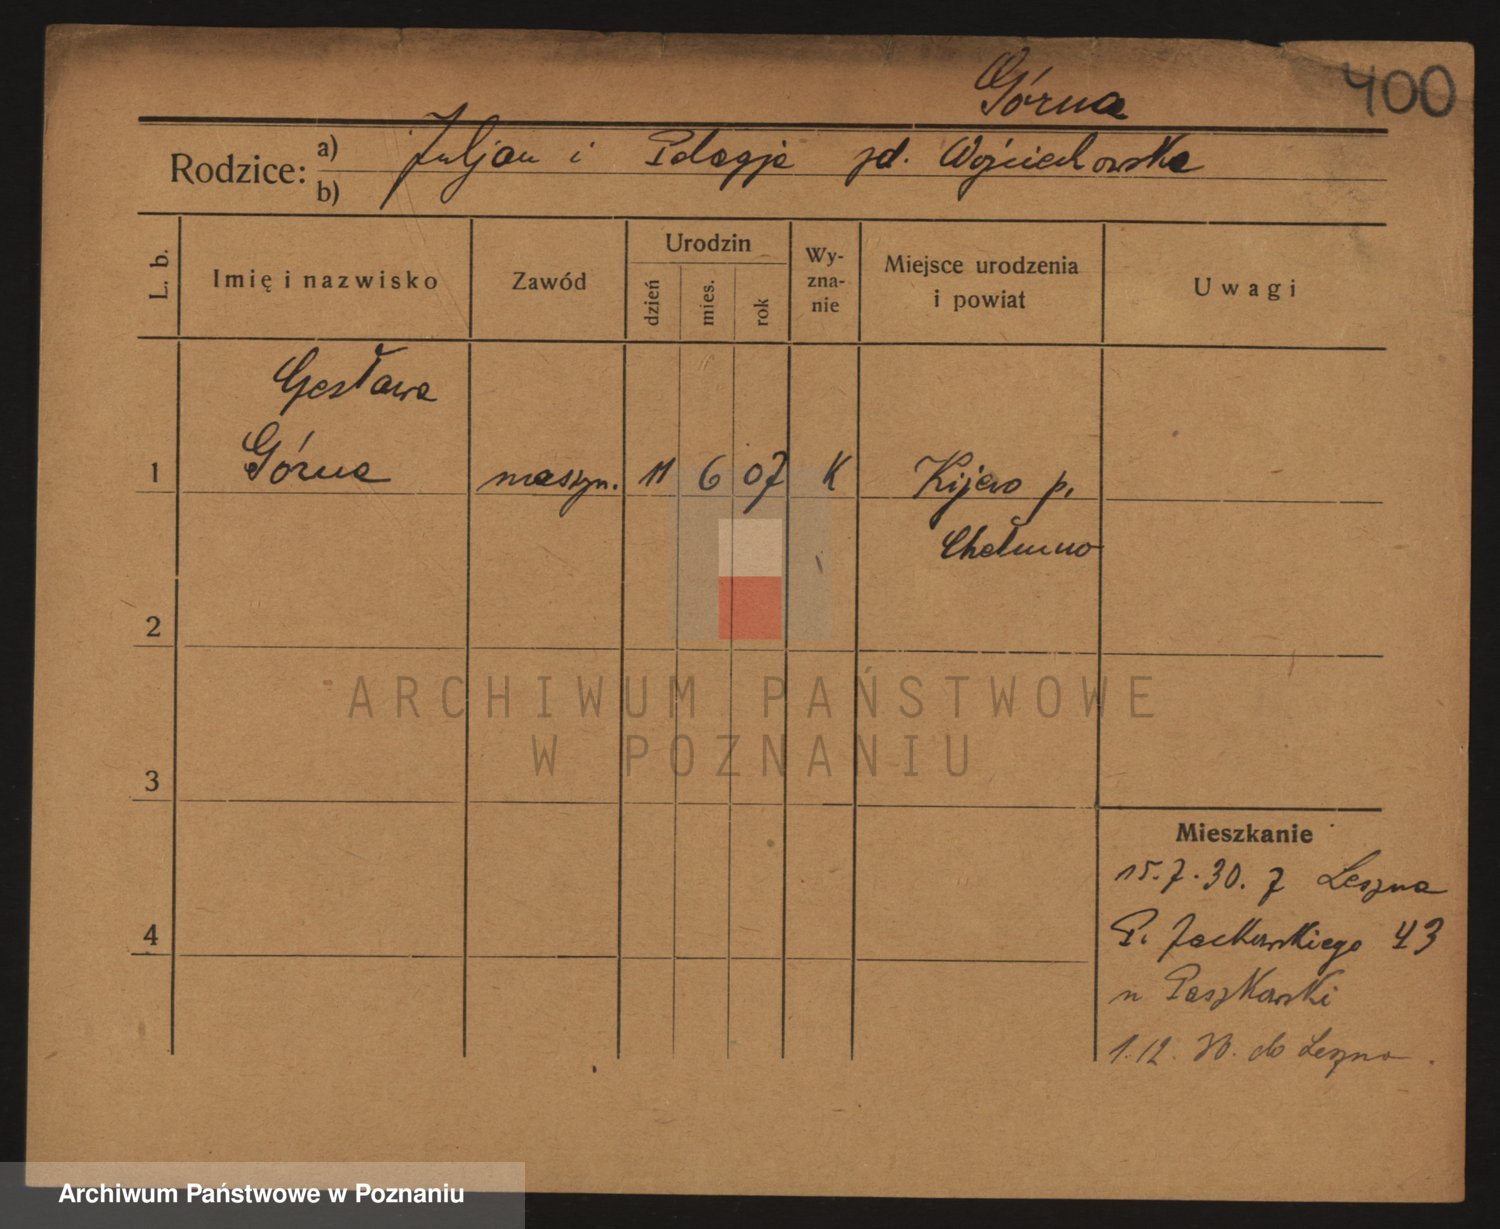 Górna 400
Rodzice: a) Juljan i Pelagja zd. Wojciechowska
b)
L. b. Imię i nazwisko Zawód Urodzin dzień mies. rok Wy-zna-nie Miejsce urodzenia i powiat Uwagi
Czesława
1 Górna maszyn. 11 6 07 K Kijewo p.
Chełmno
2
ARCHIWUM PAŃSTWOWE
W POZNANIU
3
Mieszkanie
15.7.30. z Leszna
4 P. Jackowskiego 43
u Paszkowski
1.12. 30. do Leszna.
Archiwum Państwowe w Poznaniu